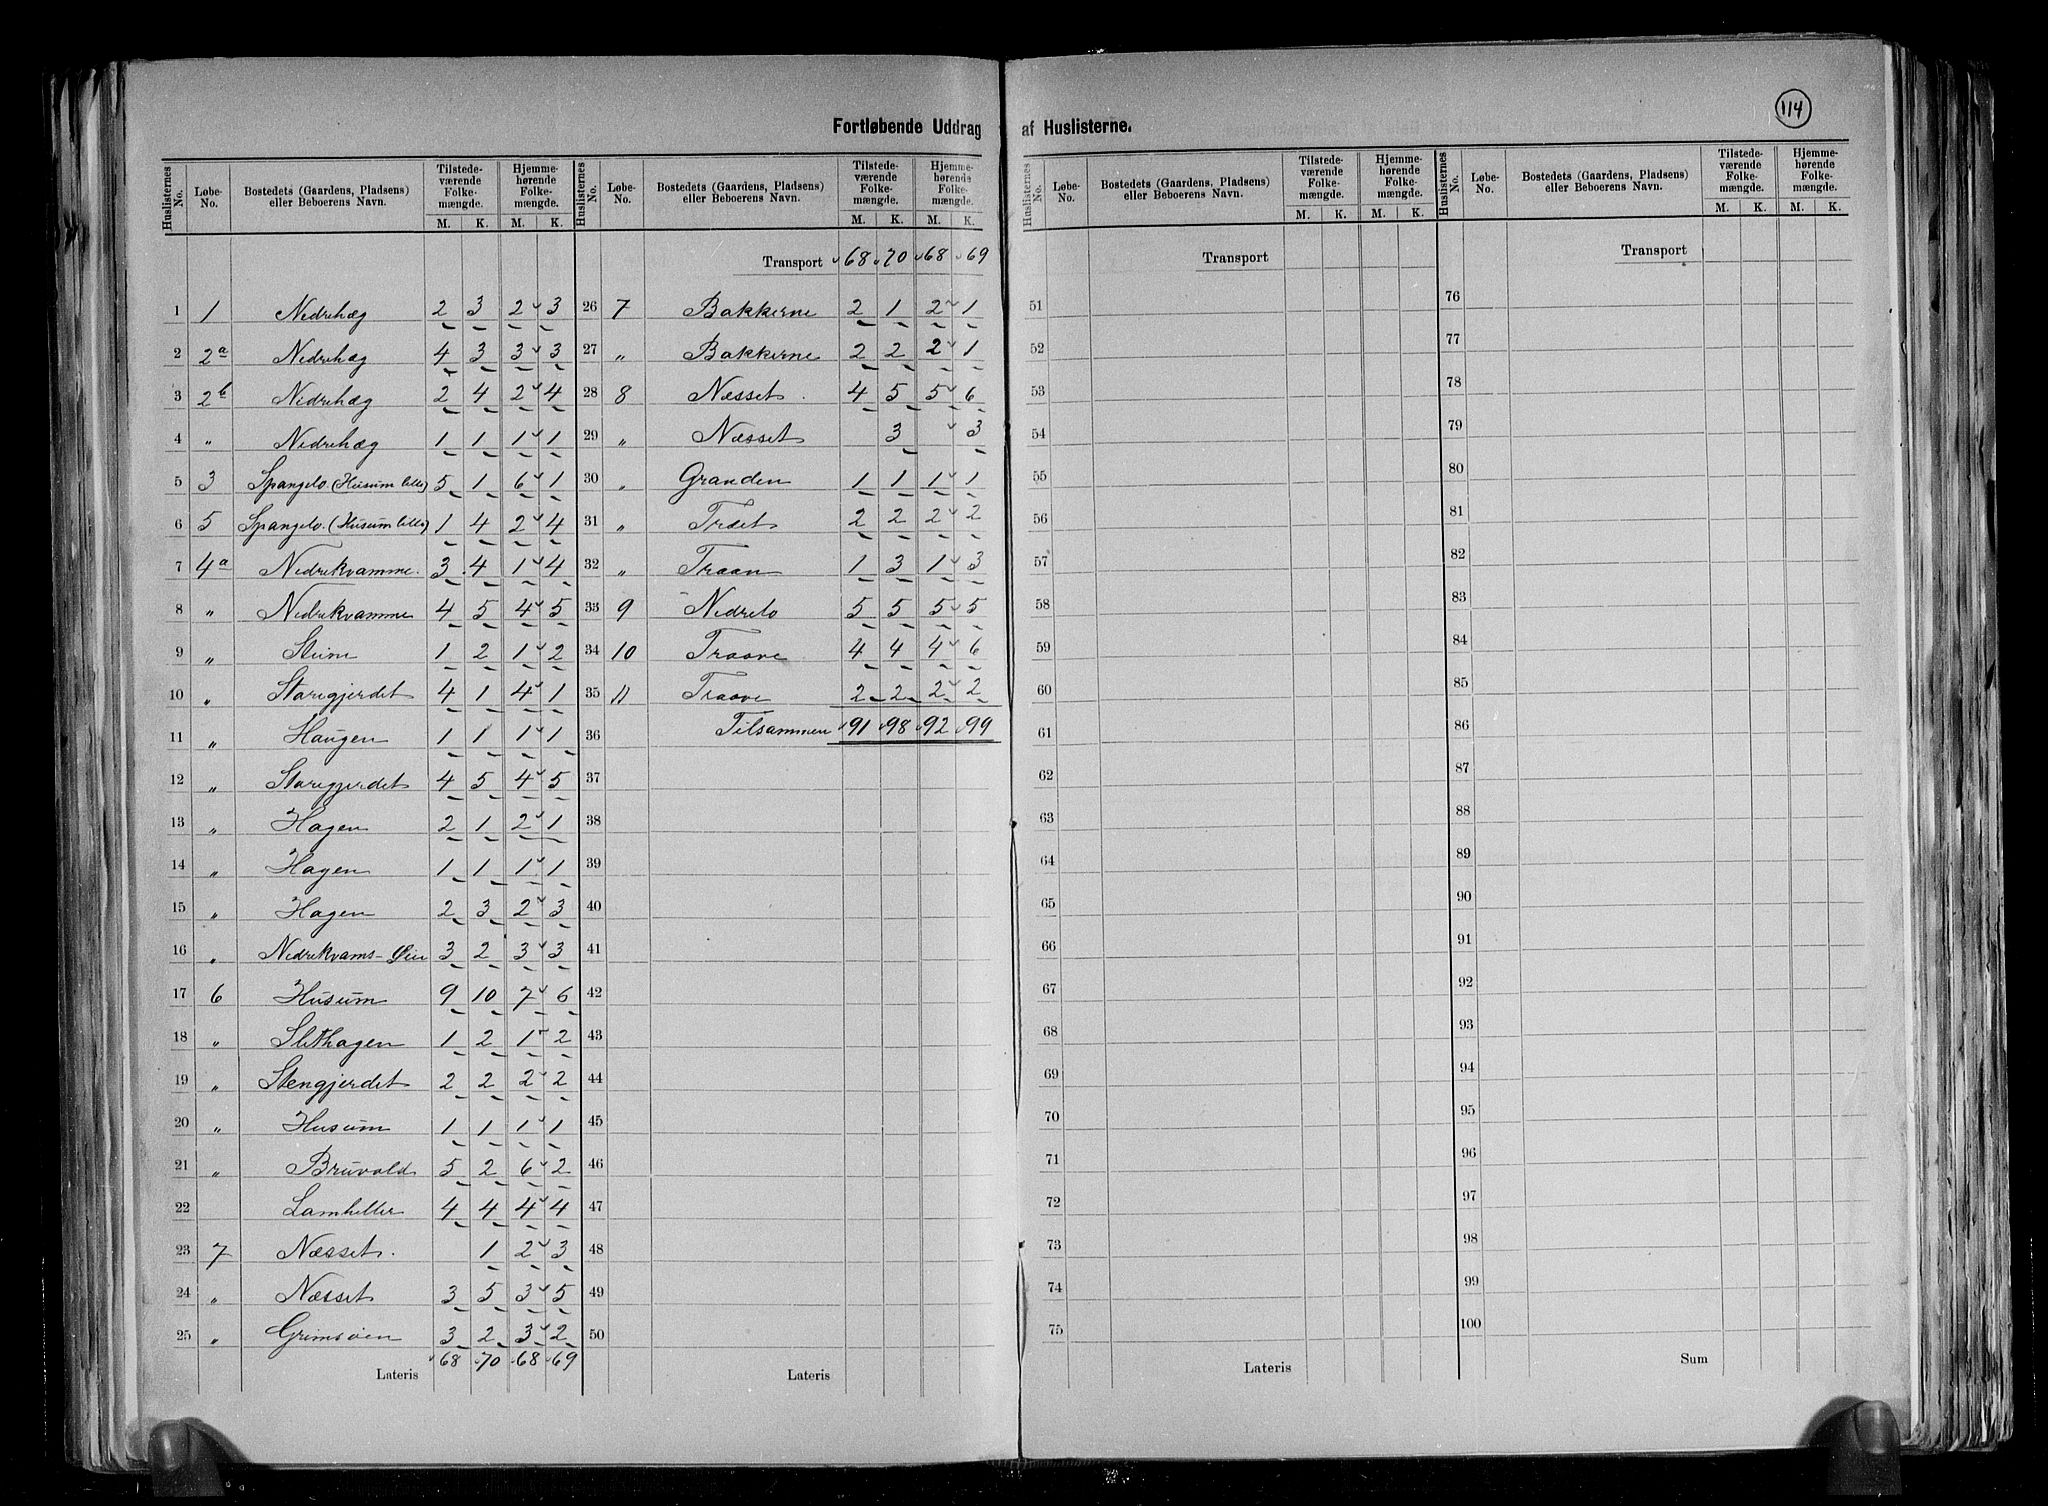 114
Fortløbende Uddrag af Huslisterne.
Huslisternes No. | Løbe-No. | Bostedets (Gaardens, Pladsens) eller Beboerens Navn. | Tilstedeværende Folkemængde. M. K. | Hjemmehørende Folkemængde. M. K.
1 1 Nedrehæg 2 3 2 3
2 2a Nedrehæg 4 3 3 3
3 2b Nedrehæg 2 4 2 4
4 " Nedrehæg 1 1 1 1
5 3 Spangelo (Husum lille) 5 1 6 1
6 5 Spangelo. (Husum lille) 1 4 2 4
7 4a Nedrekvamme. 3 4 1 4
8 " Nedrekvamme 4 5 4 5
9 " Steine 1 2 1 2
10 " Staregjerdet 4 1 4 1
11 " Haugen 1 1 1 1
12 " Staregjerdet 4 5 4 5
13 " Hagen 2 1 2 1
14 " Hagen 1 1 1 1
15 " Hagen 2 3 2 3
16 " Nedrekvams- Øien 3 2 3 3
17 6 Husum 9 10 7 6
18 " Slethagen 1 2 1 2
19 " Stengjerdet 2 2 2 2
20 " Husum 1 1 1 1
21 " Bruvold 5 2 6 2
22 Lamheller 4 4 4 4
23 7 Næsset. 1 2 3
24 " Næsset 3 5 3 5
25 " Grimsøen 3 2 3 2
Lateris 68 70 68 69
Huslisternes No. | Løbe-No. | Bostedets (Gaardens, Pladsens) eller Beboerens Navn. | Tilstedeværende Folkemængde. M. K. | Hjemmehørende Folkemængde. M. K.
Transport 68 70 68 69
26 7 Bakkerne 2 1 2 1
27 " Bakkerne 2 2 2 1
28 8 Næsset. 4 5 5 6
29 " Næsset 3 3
30 " Granden 1 1 1 1
31 " Træet 2 2 2 2
32 " Traan 1 3 1 3
33 9 Nedrelo 5 5 5 5
34 10 Traave 4 4 4 6
35 11 Traave 2 2 2 2
36 Tilsammen 91 98 92 99
37
38
39
40
41
42
43
44
45
46
47
48
49
50
Lateris
Huslisternes No. | Løbe-No. | Bostedets (Gaardens, Pladsens) eller Beboerens Navn. | Tilstedeværende Folkemængde. M. K. | Hjemmehørende Folkemængde. M. K.
Transport
51
52
53
54
55
56
57
58
59
60
61
62
63
64
65
66
67
68
69
70
71
72
73
74
75
Lateris
Huslisternes No. | Løbe-No. | Bostedets (Gaardens, Pladsens) eller Beboerens Navn. | Tilstedeværende Folkemængde. M. K. | Hjemmehørende Folkemængde. M. K.
Transport
76
77
78
79
80
81
82
83
84
85
86
87
88
89
90
91
92
93
94
95
96
97
98
99
100
Sum